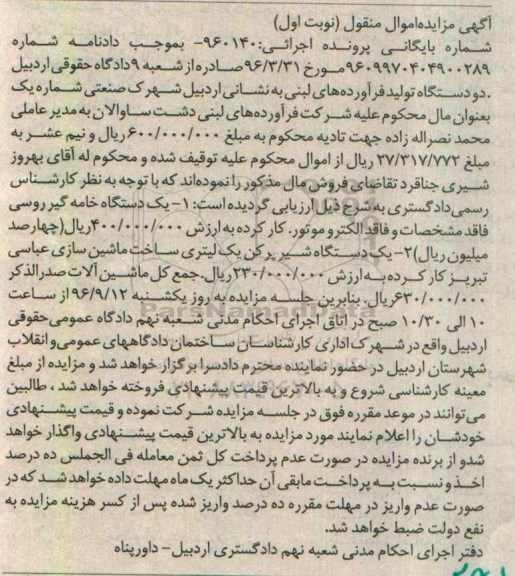 آگهی مزایده‌اموال منقول (نوبت اول)
شماره بایگانی پرونده اجرائی:۹۶۰۱۴۰- بموجب دادنامه شماره
۹۶۰۹۹۷۰۴۰۴۹۰۰۲۸۹مورخ ۹۶/۳/۳۱صادره از شعبه ۹دادگاه حقوقی اردبیل
.دو دستگاه تولید فرآورده‌های لبنی به نشانی اردبیل شهرک صنعتی شماره یک
بعنوان مال محکوم علیه شرکت فرآورده‌های لبنی دشت ساوالان به مدیر عاملی
محمد نصراله زاده جهت تادیه محکوم به مبلغ ۶۰۰/۰۰۰/۰۰۰ریال و نیم عشر به
مبلغ ۲۷/۳۱۷/۷۷۲ ریال از اموال محکوم علیه توقیف شده و محکوم له آقای بهروز
شیری جناقرد تقاضای فروش مال مذکور را نموده‌اند که با توجه به نظر کارشناس
رسمی دادگستری به شرح ذیل ارزیابی گردیده است: ۱- یک دستگاه خامه گیر روسی
فاقد مشخصات و فاقد الکترو موتور. کار کرده به ارزش ۴۰۰/۰۰۰/۰۰۰ریال(چهارصد
میلیون ریال) ۲- یک دستگاه شیر پرکن یک لیتری ساخت ماشین سازی عباسی
تبریز کار کرده به ارزش ۲۳۰/۰۰۰/۰۰۰ریال.جمع کل ماشین آلات صدرالذکر
۶۳۰/۰۰۰/۰۰۰ریال. بنابرین جلسه مزایده به روز یکشنبه ۹۶/۹/۱۲ از ساعت
۱۰ الی ۱۰/۳۰ صبح در اتاق اجرای احکام مدنی شعبه نهم دادگاه عمومی حقوقی
اردبیل واقع در شهرک اداری کارشناسان ساختمان دادگاههای عمومی و انقلاب
شهرستان اردبیل در حضور نماینده محترم دادسرا برگزار خواهد شد و مزایده از مبلغ
معینه کارشناسی شروع و به بالاترین قیمت پیشنهادی فروخته خواهد شد ، طالبین
می‌توانند در موعد مقرره فوق در جلسه مزایده شرکت نموده و قیمت پیشنهادی
خودشان را اعلام نمایند مورد مزایده به بالاترین قیمت پیشنهادی واگذار خواهد
شدو از برنده مزایده در صورت عدم پرداخت کل ثمن معامله فی الجملس ده درصد
اخذ و نسبت به پرداخت مابقی آن حداکثر یک ماه مهلت داده خواهد شد که در
صورت عدم واریز در مهلت مقرره ده درصد واریز شده پس از کسر هزینه مزایده به
نفع دولت ضبط خواهد شد.
دفتر اجرای احکام مدنی شعبه نهم دادگستری اردبیل- داورپناه
ParsNamadData